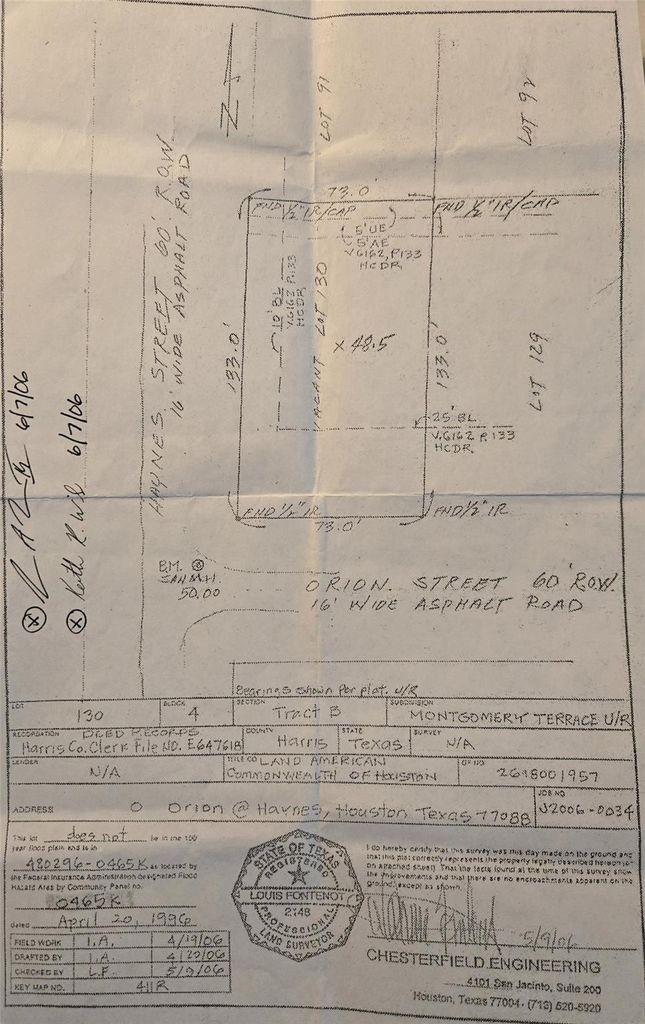 LOT 91
LOT 92
HAYNES STREET 60' ROW
16' WIDE ASPHALT ROAD
73.0'
FND 1/2" IR/CAP
FND 1/2" IR/CAP
5' UE
5' AE
V.6162, P.133
HCDR
10' BL
V.6162 P.133
HCDR
VACANT LOT 130
x 48.5
133.0'
133.0'
LOT 129
25' BL
V.6162 P.133
HCDR.
FND 1/2" IR
73.0'
FND 1/2" IR
6/7/06
Keith R. 6/7/06
B.M.
SAN M.H.
50.00
ORION STREET 60' ROW.
16' WIDE ASPHALT ROAD
Bearings shown per plat. U/R
LOT 130
BLOCK 4
SECTION Tract B
SUBDIVISION MONTGOMERY TERRACE U/R
RECORDATION DEED RECORDS
Harris Co. Clerk File NO. E647618
COUNTY Harris
STATE Texas
SURVEY N/A
LENDER N/A
TITLE CO LAND AMERICAN
COMMONWEALTH OF HOUSTON
GF NO. 2618001957
ADDRESS 0 Orion @ Haynes, Houston Texas 77088
JOB NO J2006-0034
This lot does not lie in the 100
year flood plain and is in
480296-0465K as located by
the Federal Insurance Administration designated Flood
Hazard Area by Community Panel no.
0465K
dated April 20, 1996
FIELD WORK I.A. 4/19/06
DRAFTED BY I.A. 4/20/06
CHECKED BY L.F. 5/9/06
KEY MAP NO. 411R
STATE OF TEXAS
REGISTERED
LOUIS FONTENOT
2148
PROFESSIONAL
LAND SURVEYOR
I do hereby certify that this survey was this day made on the ground and
that this plat correctly represents the property legally described hereon (or
on attached sheet). That the facts found at the time of this survey show
the improvements and that there are no encroachments apparent on the
ground, except as shown.
5/9/06
CHESTERFIELD ENGINEERING
4101 San Jacinto, Suite 200
Houston, Texas 77004 · (713) 520-5920